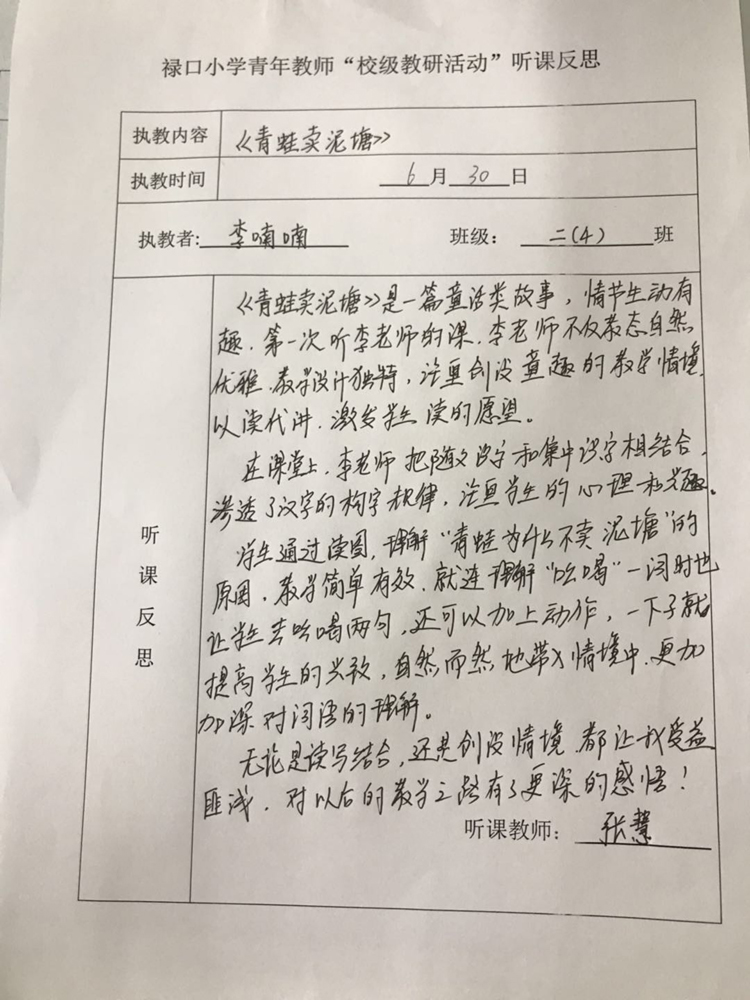 禄口小学青年教师“校级教研活动”听课反思
执教内容 《青蛙卖泥塘》
执教时间 6 月 30 日
执教者: 李喃喃 班级: 二(4) 班
听课反思
《青蛙卖泥塘》是一篇童话类故事，情节生动有
趣．第一次听李老师的课．李老师不仅教态自然
优雅．教学设计独特，注重创设童趣的教学情境，
以读代讲．激发学生读的愿望。
在课堂上，李老师把随文识字和集中识字相结合，
渗透了汉字的构字规律，注重学生的心理和兴趣。
学生通过读图，理解“青蛙为什么不卖泥塘”的
原因，教学简单有效．就连理解“吆喝”一词时也
让学生去吆喝两句，还可以加上动作，一下子就
提高学生的兴致，自然而然地带入情境中．更加
加深对词语的理解。
无论是读写结合，还是创设情境．都让我受益
匪浅．对以后的教学之路有了更深的感悟！
听课教师: 张慧